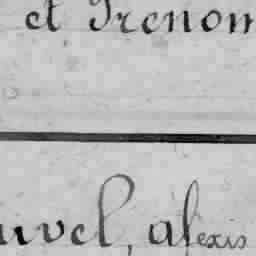 et Prenom
uvel, alexis